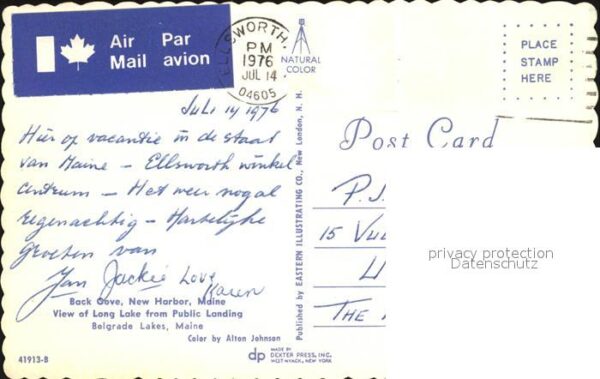 Air Par
Mail avion
ELLSWORTH,
PM
1976
JUL 14
04605
NATURAL
COLOR
PLACE
STAMP
HERE
Juli 14 1976
Hier op vacantie in de staat
van Maine – Ellsworth winkel
centrum – Het weer nogal
regenachtig – Hartelijke
groeten van
Jan Jackie Love
Karen
Back Cove, New Harbor, Maine
View of Long Lake from Public Landing
Belgrade Lakes, Maine
Color by Alton Johnson
41913-B
dp MADE BY
DEXTER PRESS, INC.
WEST NYACK, NEW YORK
Published by EASTERN ILLUSTRATING CO., New London, N. H.
Post Card
P.J.
15
THE
privacy protection
Datenschutz